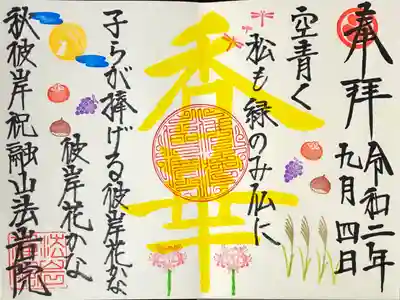 奉拝
令和二年
九月四日
空青く
松も緑のみ仏に
香華
子らが捧げる彼岸花かな
彼岸花かな
秋彼岸祝融山法岩院